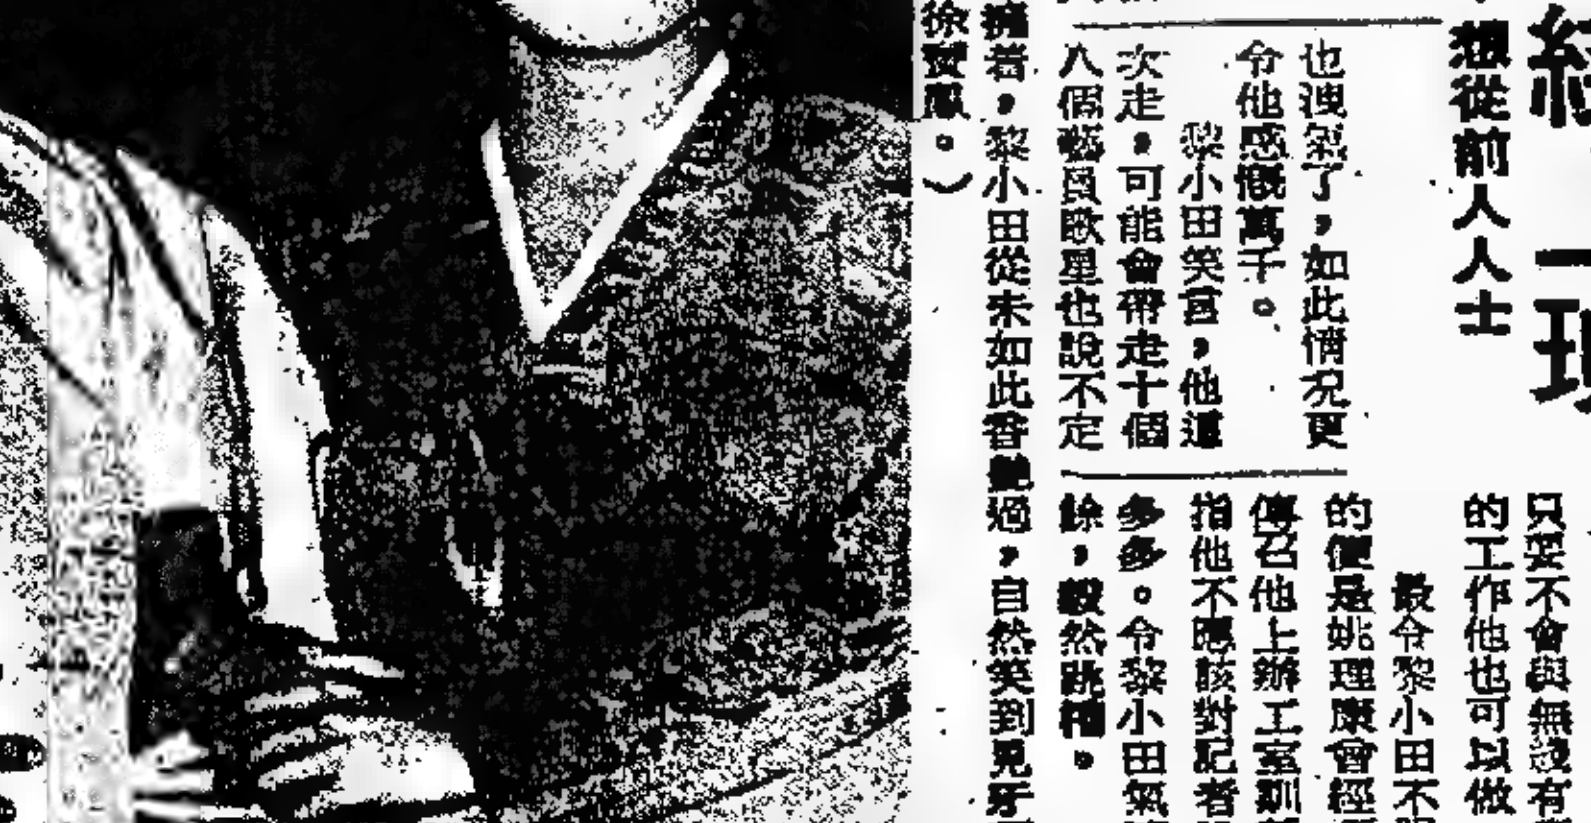 想從前人人士
也洩氣了，如此情況更
令他感慨萬千。
黎小田笑言，他這
次走，可能會帶走十個
八個藝員歌星也說不定
只要不會與無綫有
的工作他也可以做
最令黎小田不
的便是姚理廉會經
傳召他上辦工室訓
指他不應該對記者
多多。令黎小田氣
餘，毅然跳槽。
擁着，黎小田從未如此香艷過，自然笑到見牙
徐寶鳳。）